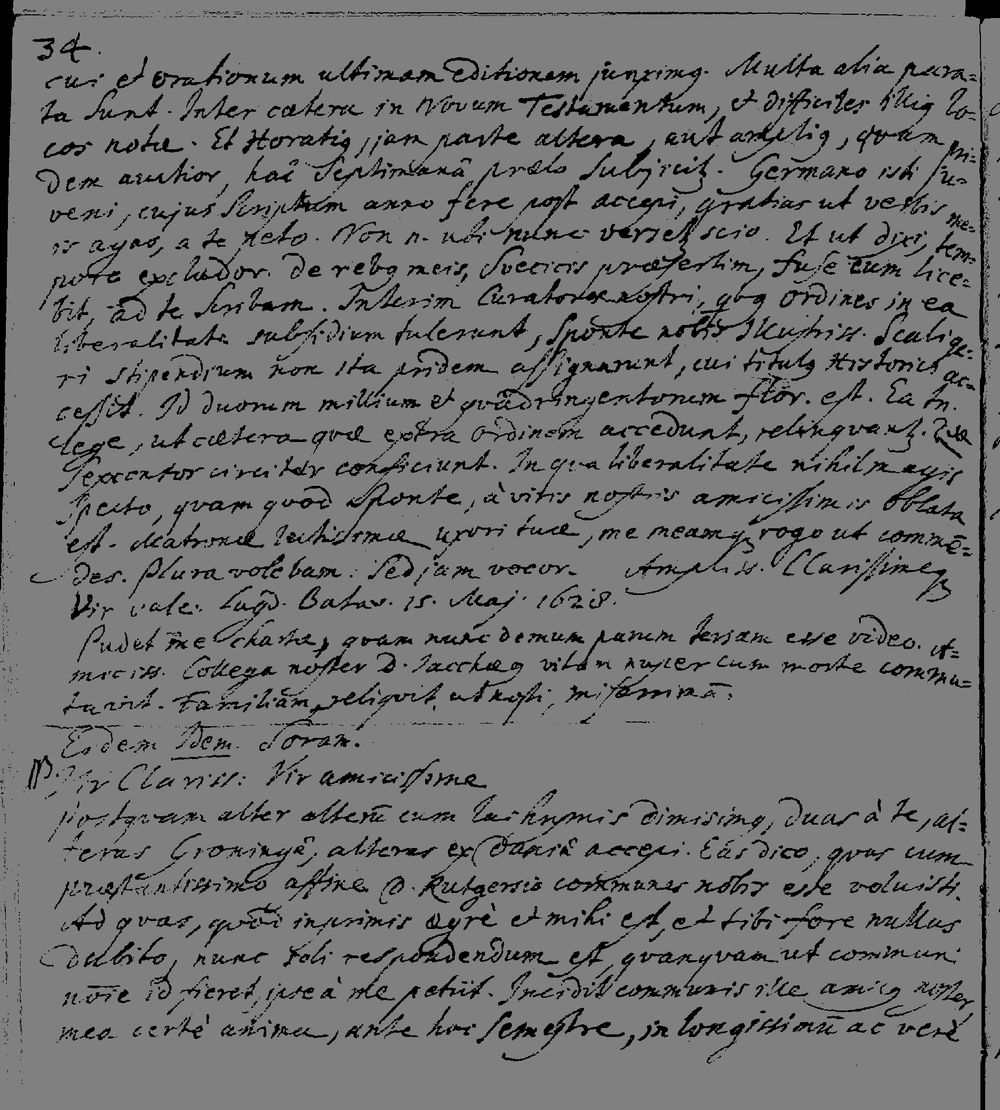 34.
cui et orationum ultimam Editionem junximq. Multa alia para=
ta sunt. Inter cætera in Novum Testamentum, et difficiles illiq lo-
cos notæ. Et Horatiq, jam parte altera, aut ampliq, quam pri-
dem auctior, hac Septimanâ prælo subjicit. Germano isti ju-
veni, cujus Scriptum anno fere post accepi, gratias ut verbis me=
is agas, a te peto. Non n. ubi nunc verset scio. Et ut dixi, tem-
pore excludor. De rebq meis, Svecicis præsertim, fuse cum lice-
bit, ad te scribam. Interim Curatores nostri, quoq Ordines in ea
liberalitate subsidium tulerunt, sponte nobis Illustriss. Scalige-
ri stipendium non ita pridem assignarunt, cui titulq Historici ac-
cessit. Id duorum millium et quadringentorum flor. est. Ea tn.
lege, ut cætera quæ extra ordinem accedunt, relinquant.
sexcentos circiter conficiunt. In qua liberalitate nihil magis
specto, quam quod sponte, à viris nostris amicissimis oblata
est. Matronæ lectissimæ uxori tuæ, me meamq rogo ut commē=
des. Plura volebam. Sed jam vocor. Ampliss. Clarissimeq
Vir vale. Lugd. Batav. 15. Maj. 1628.
Pudet me chartæ, quam nunc demum parum tersam esse video. A=
miciss. Collega noster D. Jacchæq vitam nuper cum morte commu=
tavit. Familiam reliquit, ut nosti, miserrimā.
Eidem Idem. Soram.
Vir Clariss: Vir amicissime
postquam alter alterū cum lachrymis dimisimq, duas à te, al=
teras Groningâ, alteras ex Daniâ accepi. Eas dico, quas cum
præstantissimo affine D. Rutgersio communes nobis esse voluisti.
Ad quas, quod inprimis ægrè et mihi est, et tibi fore nullus
dubito, nunc soli respondendum est, quanquam ut communi
noīe id fieret, ipse à me petiit. Incidit communis ille amicq noster,
mea certè anima, ante hoc semestre, in longissimū ac verè